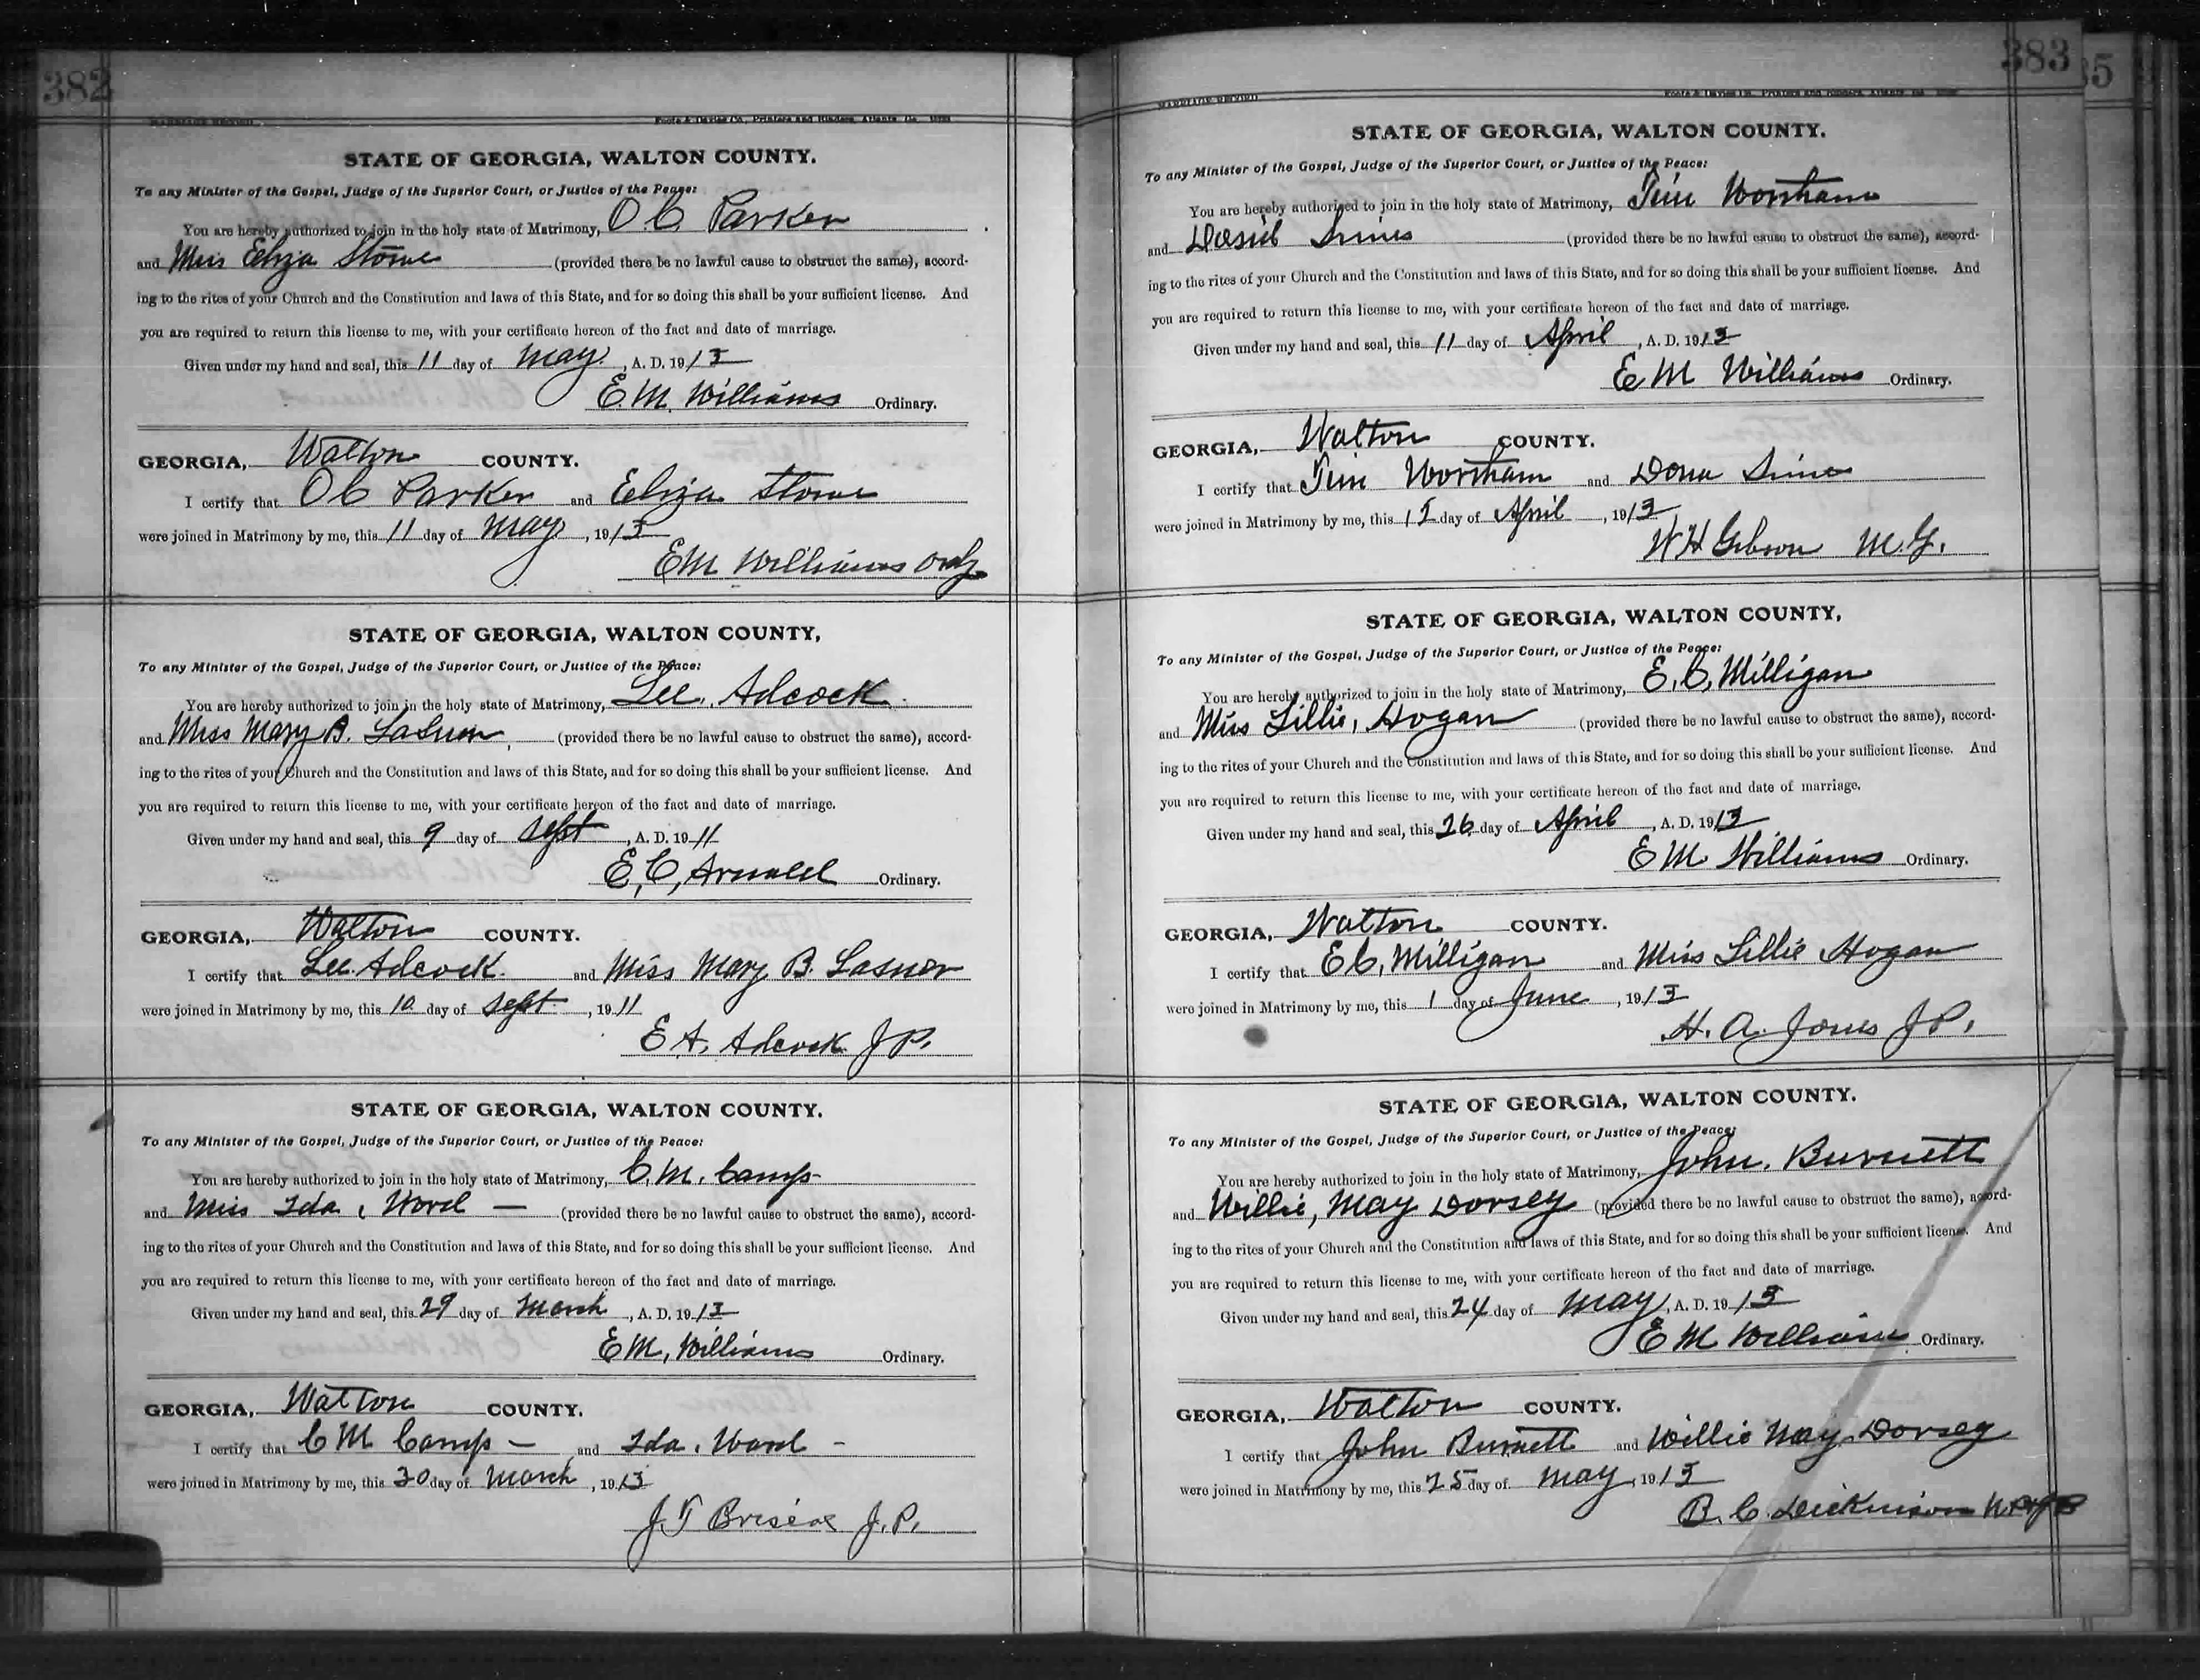 382
MARRIAGE RECORD
Foote & Davies Co., Printers and Binders, Atlanta, Ga.
STATE OF GEORGIA, WALTON COUNTY.
To any Minister of the Gospel, Judge of the Superior Court, or Justice of the Peace:
You are hereby authorized to join in the holy state of Matrimony, O. C. Parker
and Miss Eliza Stowe (provided there be no lawful cause to obstruct the same), accord-
ing to the rites of your Church and the Constitution and laws of this State, and for so doing this shall be your sufficient license. And
you are required to return this license to me, with your certificate hereon of the fact and date of marriage.
Given under my hand and seal, this 11 day of May, A. D. 1913
E. M. Williams Ordinary.
GEORGIA, Walton COUNTY.
I certify that O C Parker and Eliza Stowe
were joined in Matrimony by me, this 11 day of May, 1913
E M Williams Ordy
STATE OF GEORGIA, WALTON COUNTY,
To any Minister of the Gospel, Judge of the Superior Court, or Justice of the Peace:
You are hereby authorized to join in the holy state of Matrimony, Lee. Adcock.
and Miss Mary B. (provided there be no lawful cause to obstruct the same), accord-
ing to the rites of your Church and the Constitution and laws of this State, and for so doing this shall be your sufficient license. And
you are required to return this license to me, with your certificate hereon of the fact and date of marriage.
Given under my hand and seal, this 9 day of Sept, A. D. 1911
E, C, Arnold Ordinary.
GEORGIA, Walton COUNTY.
I certify that Lee. Adcock. and Miss Mary B. Lasner
were joined in Matrimony by me, this 10 day of Sept, 1911
E A. Adcock J P.
STATE OF GEORGIA, WALTON COUNTY.
To any Minister of the Gospel, Judge of the Superior Court, or Justice of the Peace:
You are hereby authorized to join in the holy state of Matrimony, C, M. Camp-
and Miss Ida, Word — (provided there be no lawful cause to obstruct the same), accord-
ing to the rites of your Church and the Constitution and laws of this State, and for so doing this shall be your sufficient license. And
you are required to return this license to me, with your certificate hereon of the fact and date of marriage.
Given under my hand and seal, this 29 day of March, A. D. 1913
E M, Williams Ordinary.
GEORGIA, Walton COUNTY.
I certify that C M Camp — and Ida. Word -
were joined in Matrimony by me, this 30 day of March, 1913
J. T Briscoe J. P.
383
85
MARRIAGE RECORD
Foote & Davies Co., Printers and Binders, Atlanta, Ga.
STATE OF GEORGIA, WALTON COUNTY.
To any Minister of the Gospel, Judge of the Superior Court, or Justice of the Peace:
You are hereby authorized to join in the holy state of Matrimony, Jim Worsham
and Sims (provided there be no lawful cause to obstruct the same), accord-
ing to the rites of your Church and the Constitution and laws of this State, and for so doing this shall be your sufficient license. And
you are required to return this license to me, with your certificate hereon of the fact and date of marriage.
Given under my hand and seal, this 11 day of April, A. D. 1913
E M Williams Ordinary.
GEORGIA, Walton COUNTY.
I certify that Jim Worsham and Dona Sims
were joined in Matrimony by me, this 15 day of April, 1913
W H Gibson M. G.
STATE OF GEORGIA, WALTON COUNTY,
To any Minister of the Gospel, Judge of the Superior Court, or Justice of the Peace:
You are hereby authorized to join in the holy state of Matrimony, E. C. Milligan
and Miss Lillie, Hogan (provided there be no lawful cause to obstruct the same), accord-
ing to the rites of your Church and the Constitution and laws of this State, and for so doing this shall be your sufficient license. And
you are required to return this license to me, with your certificate hereon of the fact and date of marriage.
Given under my hand and seal, this 26 day of April, A. D. 1913
E M Williams Ordinary.
GEORGIA, Walton COUNTY.
I certify that E C, Milligan and Miss Lillie Hogan
were joined in Matrimony by me, this 1 day of June, 1913
H. A. Jones J P.
STATE OF GEORGIA, WALTON COUNTY.
To any Minister of the Gospel, Judge of the Superior Court, or Justice of the Peace:
You are hereby authorized to join in the holy state of Matrimony, John. Burnett
and Willie, May Dorsey (provided there be no lawful cause to obstruct the same), accord-
ing to the rites of your Church and the Constitution and laws of this State, and for so doing this shall be your sufficient license. And
you are required to return this license to me, with your certificate hereon of the fact and date of marriage.
Given under my hand and seal, this 24 day of May, A. D. 1913
E M Williams Ordinary.
GEORGIA, Walton COUNTY.
I certify that John Burnett and Willie May Dorsey
were joined in Matrimony by me, this 25 day of May, 1913
B. C. Dickinson